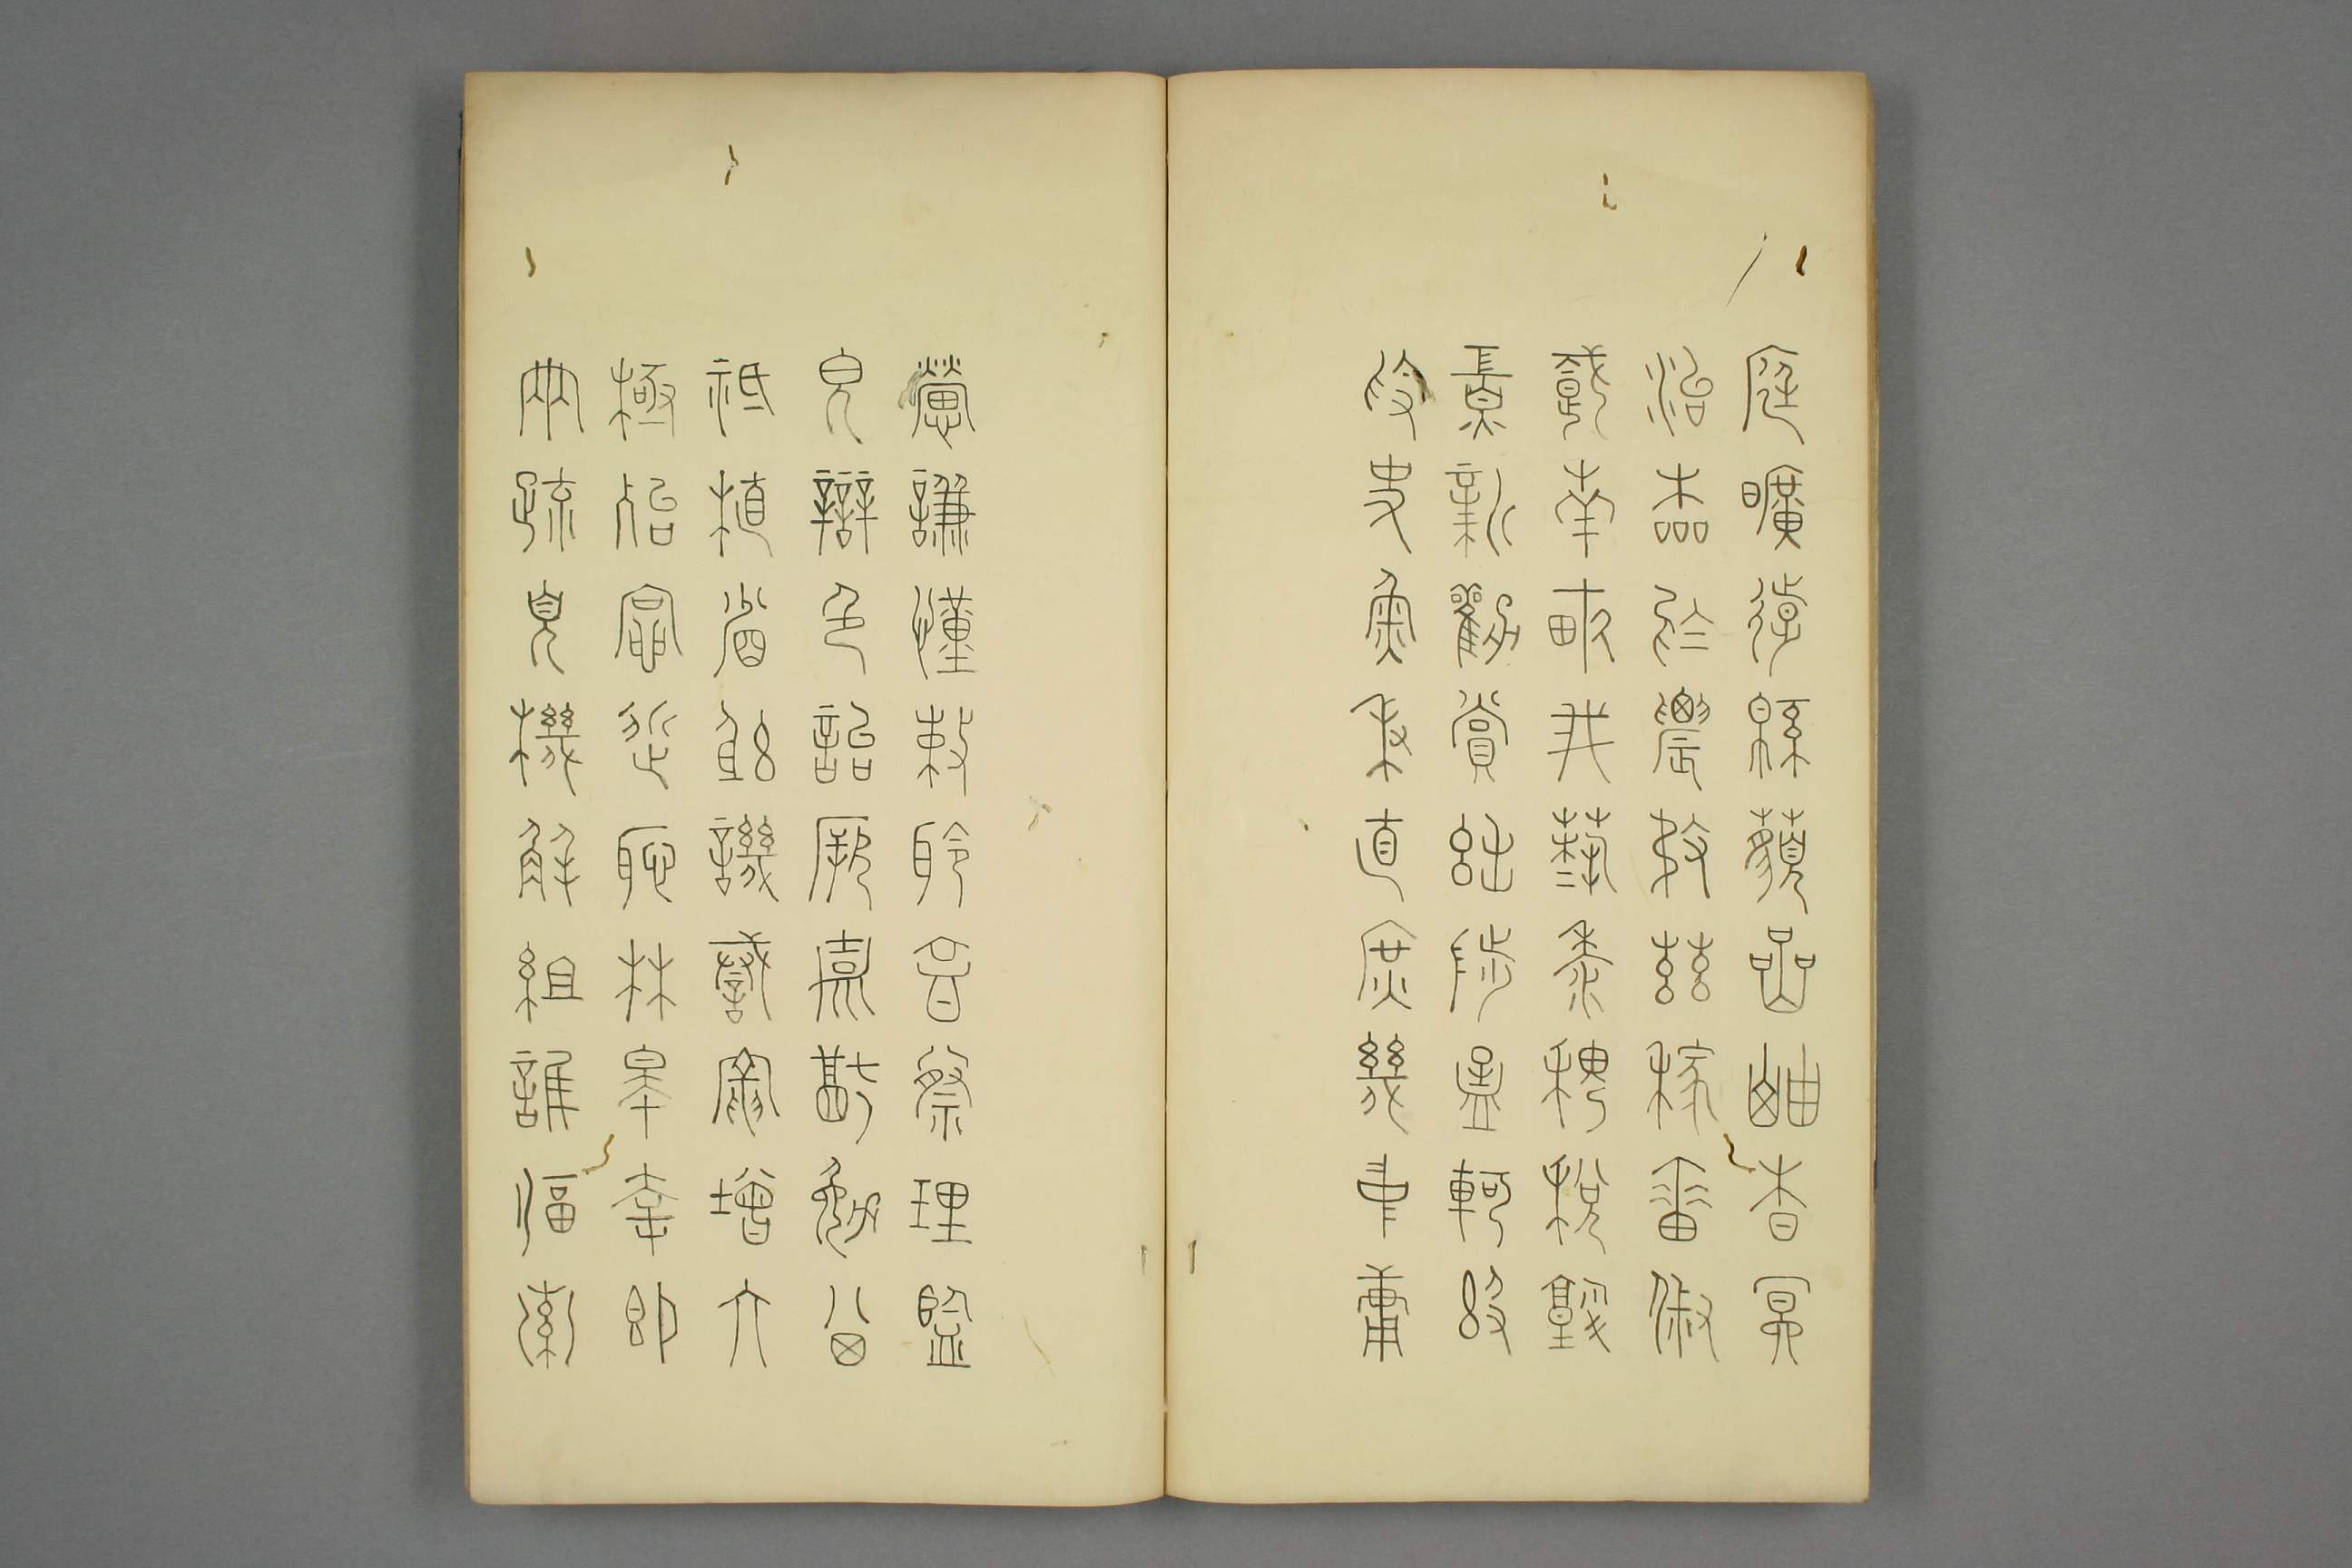 庭曠遠緜藐巖岫杳冥
治本於農務茲稼穡俶
載南畝我藝黍稷稅熟
貢新勸賞黜陟孟軻敦
素史魚秉直庶幾中庸
勞謙謹敕聆音察理鑒
皃辯色貽厥嘉猷勉其
祗植省躬譏誡寵增抗
極殆辱近恥林皋幸即
兩疏見機解組誰逼索